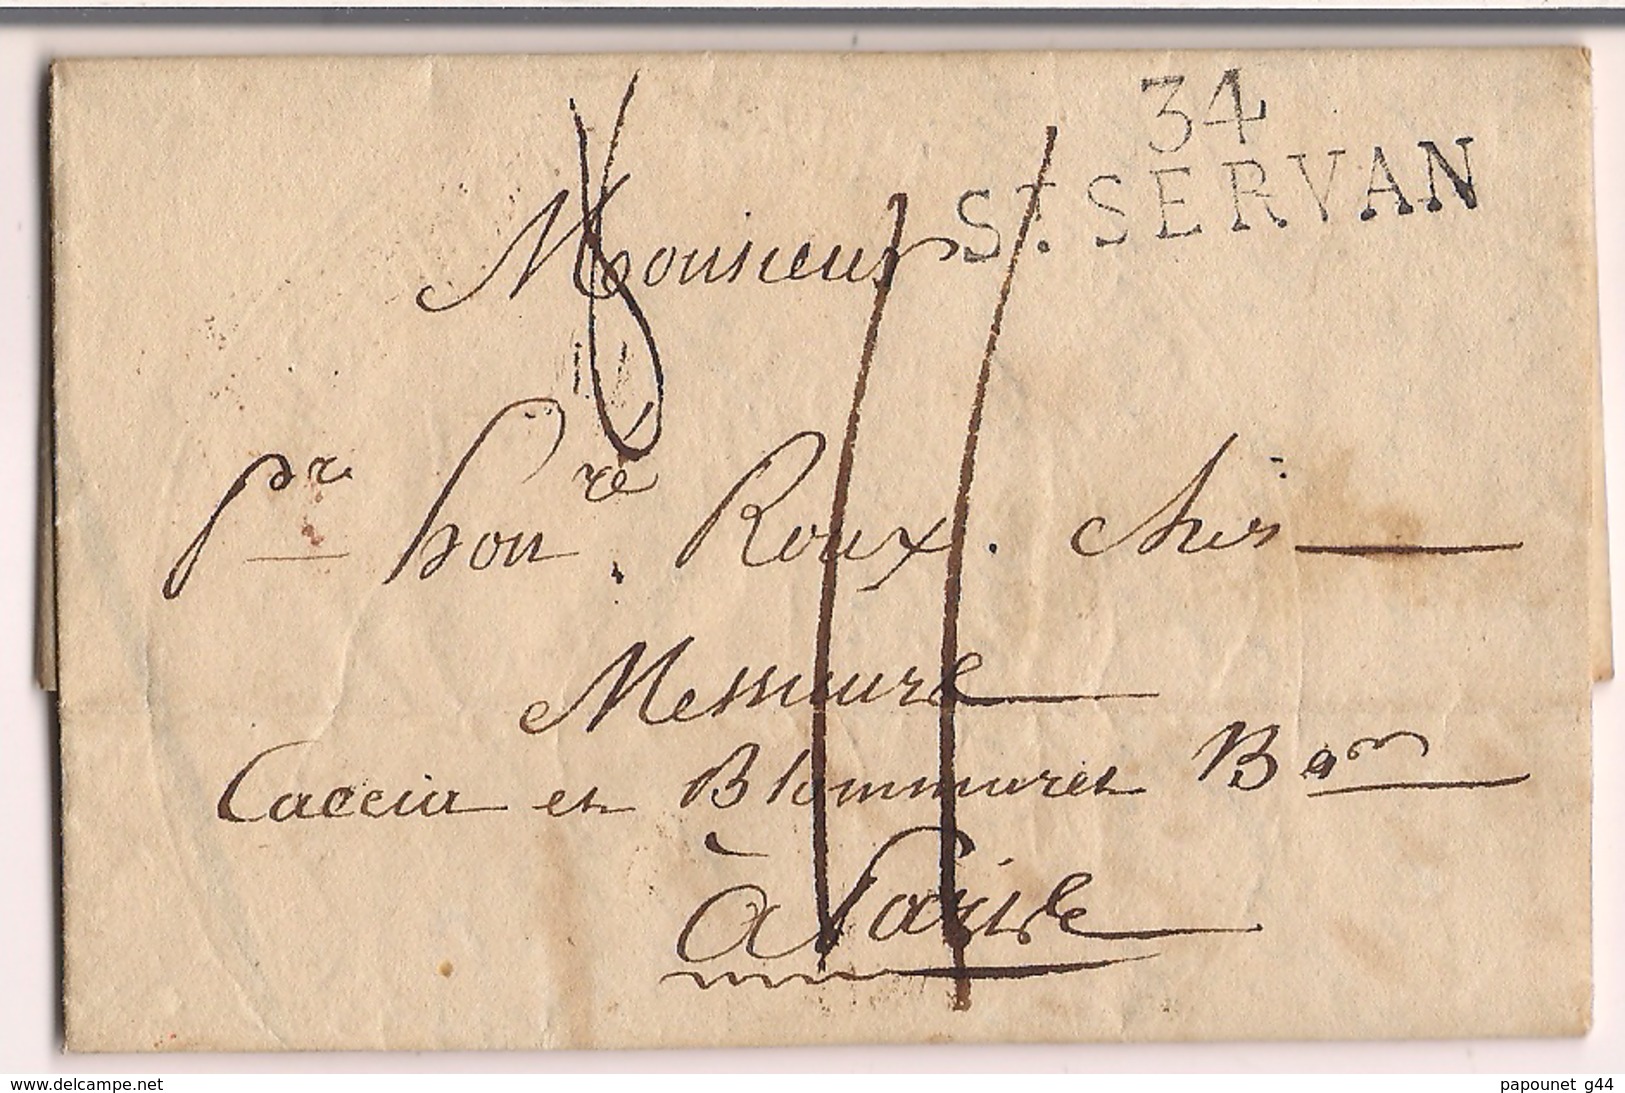 34
ST. SERVAN
Monsieur
pre honré. Roux. chés
Messieurs
Caccia et Blommaret Banrs
à Paris
www.delcampe.net
papounet g44